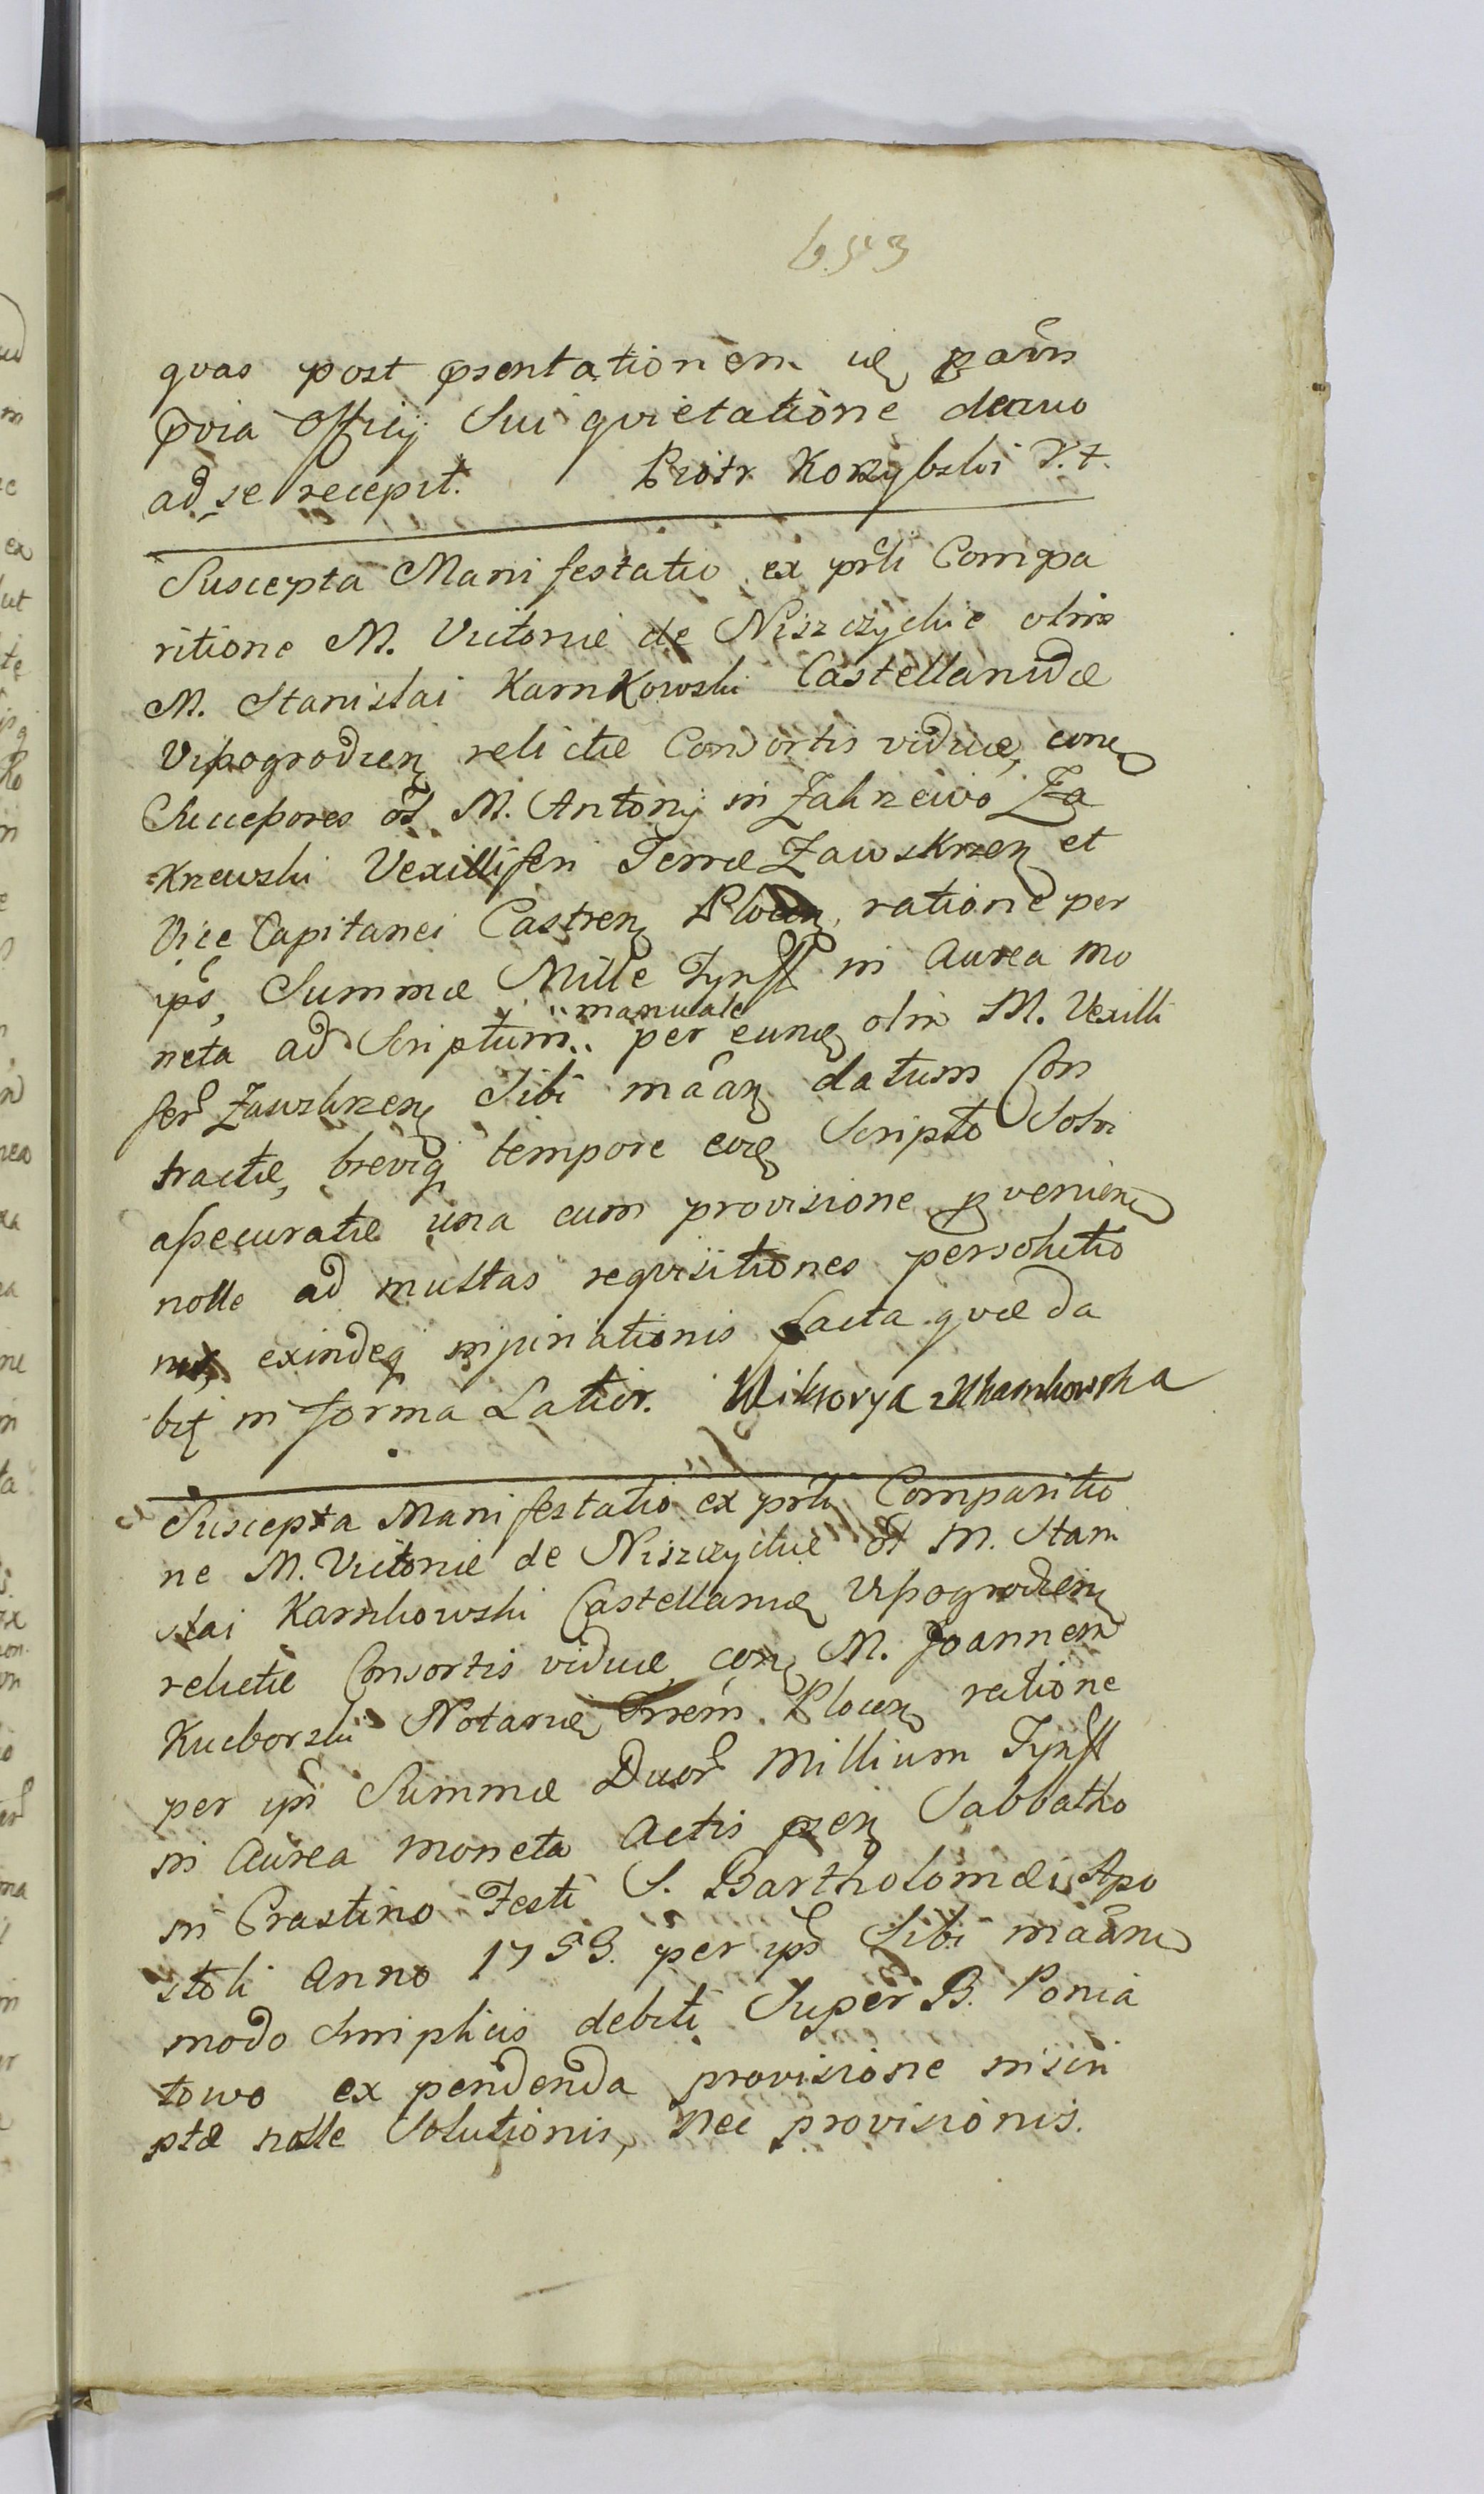 653
quas post pñsentationem idē pariñs
pvia Officij Sui quietatione denuo
ad se recepit. Piotr Korzybski V.t.
Suscepta Manifestatio ex prñli Compa
ritione M. Victoriæ de Niszczyckie olim
M. Stanislai Karnkowski Castellanidæ
Vyszogrodieñ relictæ Consortis viduæ, coñe
Succeßores ol. M. Antonij in Zakrzewo Za
krzewski Vexilliferi Terræ Zawskrzeñ et
Vice Capitanei Castreñ Ploceñ, ratione per
ipš, Summæ Mille Tynff in Aurea mo
neta ad Scriptum manuale per eundē olim M. Vexilli
ferum Zawskrzeñ Sibi manañ datum Con
tractæ, brevique tempore eodē Scripto Solvi
aßecuratæ una cum provisione pvenieñ
nolle ad multas requisitiones persolutio
nis, exindeque injuriationis facta quæ da
bit in forma Latior. Wiktorya Karnkowska
Suscepta Manifestatio ex prñli Comparitio
ne M. Victoriæ de Niszczyckie ol. M. Stani
slai Karnkowski Castellanidæ Vyszogrodieñ
relictæ Consortis viduæ coñ M. Joannem
Kuczborski Notariū Trrem Ploceñ ratione
per ipš Summæ Duorum Millium Tynff
in Aurea moneta Actis pzeñ Sabbatho
in Crastino Festi S. Bartholomæi Apo
stoli Anno 1753. per ipš Sibi manañ
modo Simplicis debiti Super B. Ponia
towo ex pendenda provisione inscri
ptæ nolle Solutionis, nec provisionis.